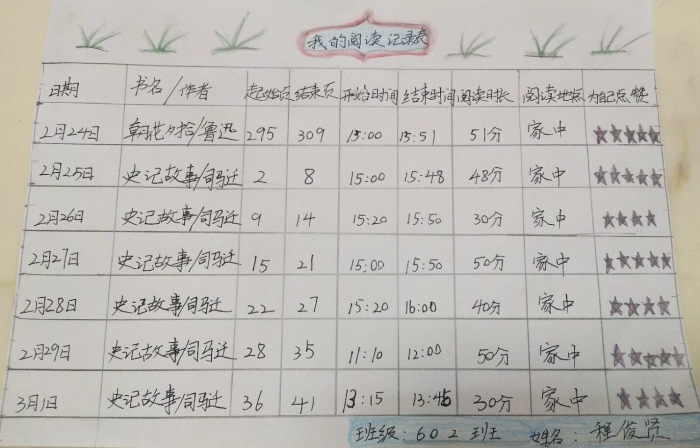 我的阅读记录表
日期 书名/作者 起始页 结束页 开始时间 结束时间 阅读时长 阅读地点 为自己点赞
2月24日 朝花夕拾/鲁迅 295 309 15:00 15:51 51分 家中 ★★★★★
2月25日 史记故事/司马迁 2 8 15:00 15:48 48分 家中 ★★★★★
2月26日 史记故事/司马迁 9 14 15:20 15:50 30分 家中 ★★★★
2月27日 史记故事/司马迁 15 21 15:00 15:50 50分 家中 ★★★★★
2月28日 史记故事/司马迁 22 27 15:20 16:00 40分 家中 ★★★★
2月29日 史记故事/司马迁 28 35 11:10 12:00 50分 家中 ★★★★★
3月1日 史记故事/司马迁 36 41 13:15 13:45 30分 家中 ★★★★
班级:602班 姓名:程俊贤